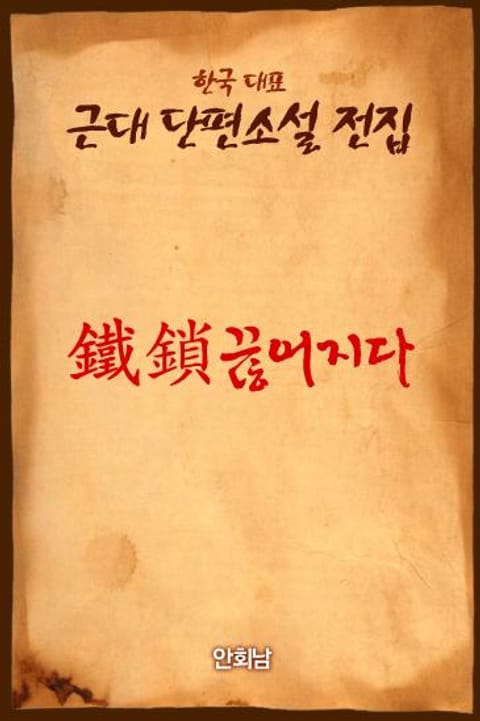 한국 대표
근대 단편소설 전집
鐵鎖 끊어지다
안회남